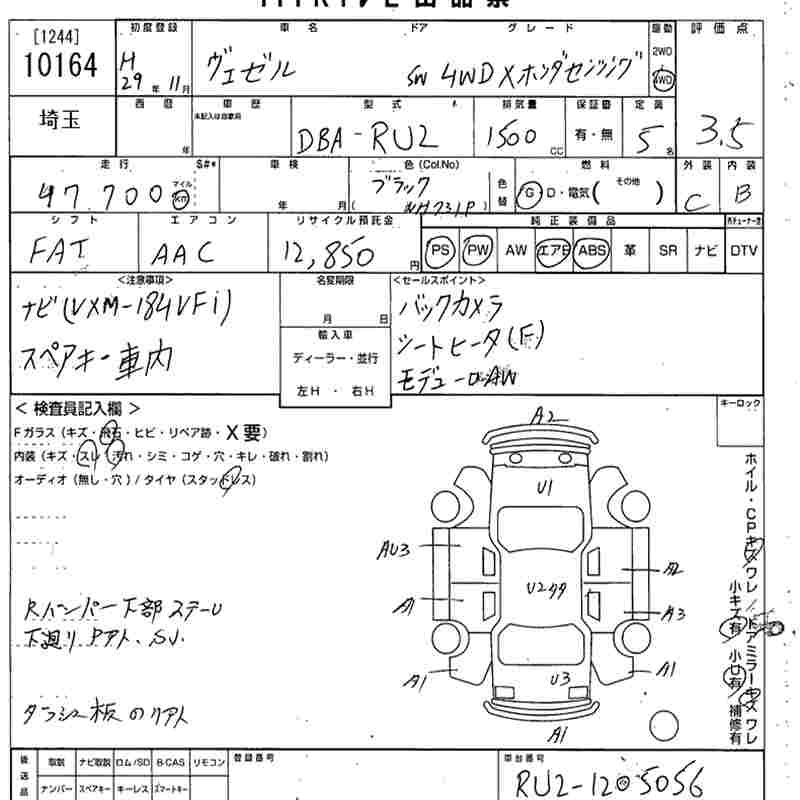 [1244]
10164
初度登録
H 29 年 11 月
車名
ヴェゼル
ドア
グレード
SW 4WD X ホンダセンシング
駆動
2WD
4WD
評価点
3.5
埼玉
西暦
年
車歴
未記入は自家用
型式
DBA-RU2
排気量
1500 CC
保証書
有・無
定員
5 名
走行
47,700
マイル
km
S#*
車検
年 月
色(Col.No)
ブラック
( NH731P )
色替
燃料
G・D・電気( その他 )
外装
C
内装
B
シフト
FAT
エアコン
AAC
リサイクル預託金
12,850 円
純正装備品
PS PW AW エアB ABS 革 SR ナビ DTV
<注意事項>
ナビ(VXM-184VFi)
スペアキー車内
名変期限
月 日
輸入車
ディーラー・並行
左H ・ 右H
<セールスポイント>
バックカメラ
シートヒータ(F)
モデューロAW
<検査員記入欄>
Fガラス(キズ・飛石・ヒビ・リペア跡・X要)
内装(キズ・スレ・汚れ・シミ・コゲ・穴・キレ・破れ・割れ)
オーディオ(無し・穴)/タイヤ(スタッドレス)
キーロック
A2
U1
AU3
A2
U2タタ
A1
A3
A1
U3
A1
A1
ホイル・CPキズワレ/ドアミラーキズワレ
小キズ有 小U有 補修有
Rバンパー下部ステーU
下廻りPアト、SJ.
ダッシュ板のリアト
後送品
取説 ナビ取説 ロム/SD B-CAS リモコン
ナンバー スペアキー キーレス スマートキー
登録番号
車台番号
RU2-1205056